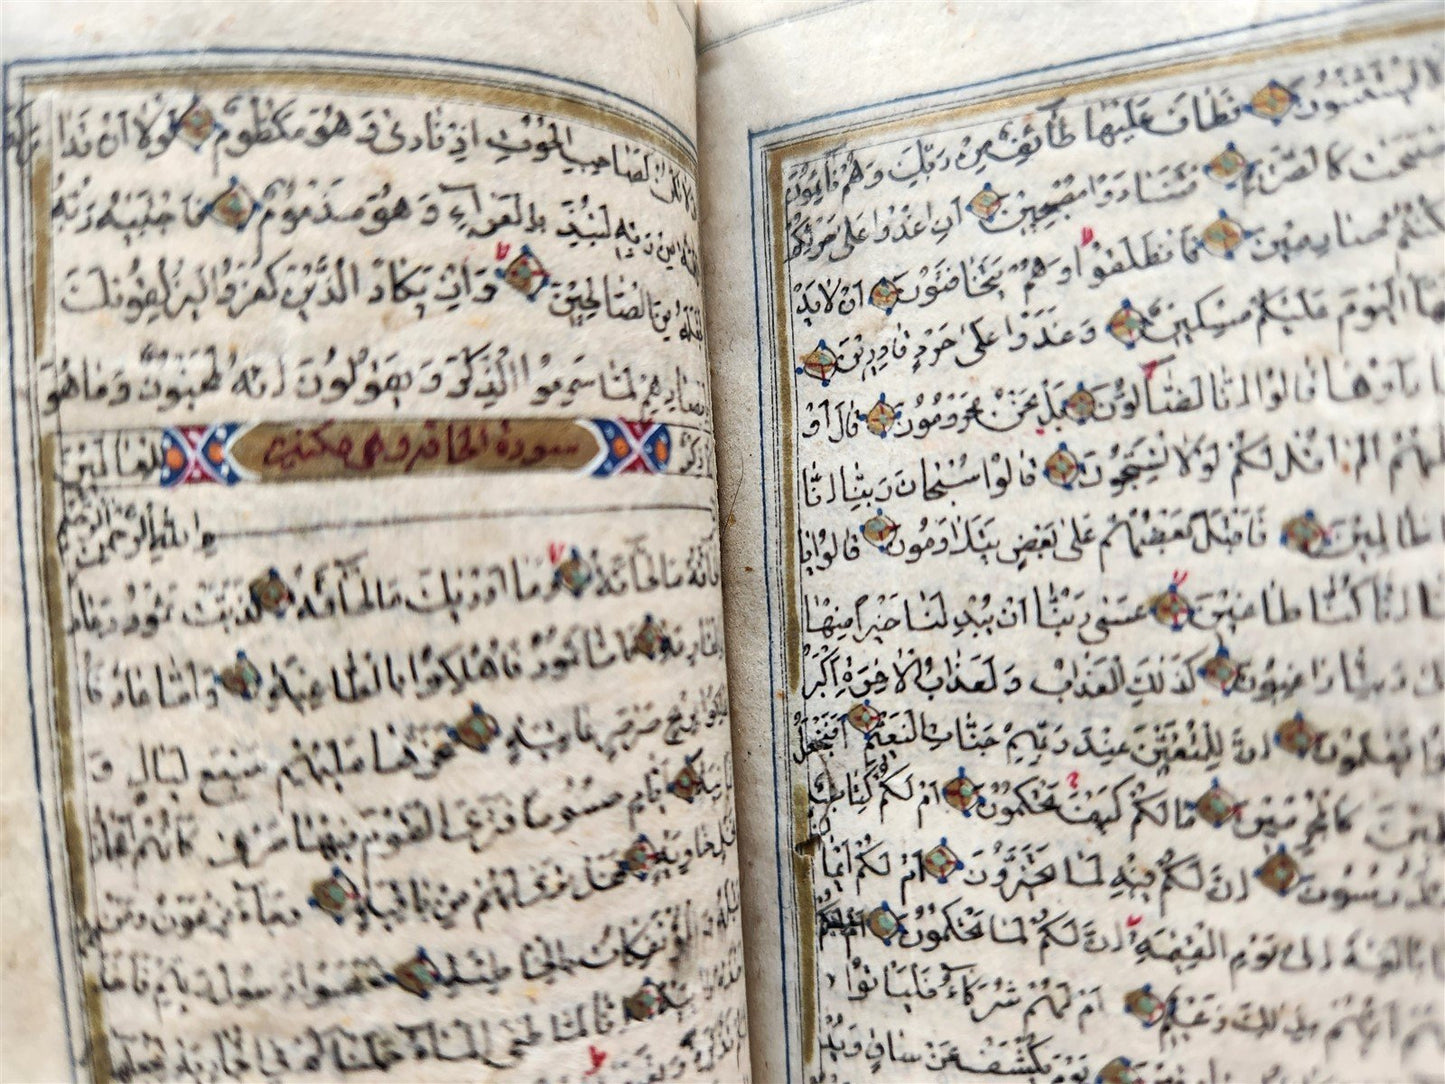 لا يستثنون فطاف عليها طائف من ربك وهم نائمون
كالصريم فتنادوا مصبحين ان اغدوا على حرثكم
كنتم صارمين فانطلقوا وهم يتخافتون ان لا يد
اليوم عليكم مسكين وغدوا على حرد قادرين
راوها قالوا انا لضالون بل نحن محرومون قال او
الم اقل لكم لولا تسبحون قالوا سبحان ربنا انا
ظالمين فاقبل بعضهم على بعض يتلاومون قالوا يا
انا كنا طاغين عسى ربنا ان يبدلنا خيرا منها
ربنا راغبون كذلك العذاب ولعذاب الاخرة اكبر
يعلمون ان للمتقين عند ربهم جنات النعيم افنجعل
كالمجرمين مالكم كيف تحكمون ام لكم كتاب فيه
تدرسون ان لكم فيه لما تخيرون ام لكم ايما
بالغة الى يوم القيمة ان لكم لما تحكمون
ايهم بذلك زعيم ام لهم شركاء فلياتوا
يوم يكشف عن ساق ويد
ولا تكن كصاحب الحوت اذ نادى وهو مكظوم لولا ان تدا
من ربه لنبذ بالعراء وهو مذموم فاجتبيه ربه
فجعله من الصالحين وان يكاد الذين كفروا ليزلقونك
بابصارهم لما سمعوا الذكر ويقولون انه لمجنون وما هو
الا ذكر للعالمين
سورة الحاقة وهي مكية
بسم الله الرحمن الرحيم
الحاقة ما الحاقة وما ادريك ما الحاقة كذبت ثمود وعاد
بالقارعة فاما ثمود فاهلكوا بالطاغية واما عاد فا
هلكوا بريح صرصر عاتية سخرها عليهم سبع ليال و
ثمانية ايام حسوما فترى القوم فيها صرعى كانهم اعجاز
نخل خاوية فهل ترى لهم من باقية وجاء فرعون ومن
قبله والمؤتفكات بالخاطئة فعصوا رسول ربهم فاخذ
رابية انا لما طغى الماء حملناكم في الجارية لنجعلها